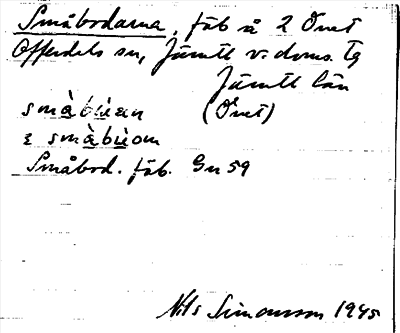 Småbodarna, fäb å 2 Önet
Offerdals sn, Jämtl v. doms. tg
Jämtl län
smàbùan (Önet)
ε smàbùom
Småbod. fäb. Gn 59
Nils Simonsson 1945